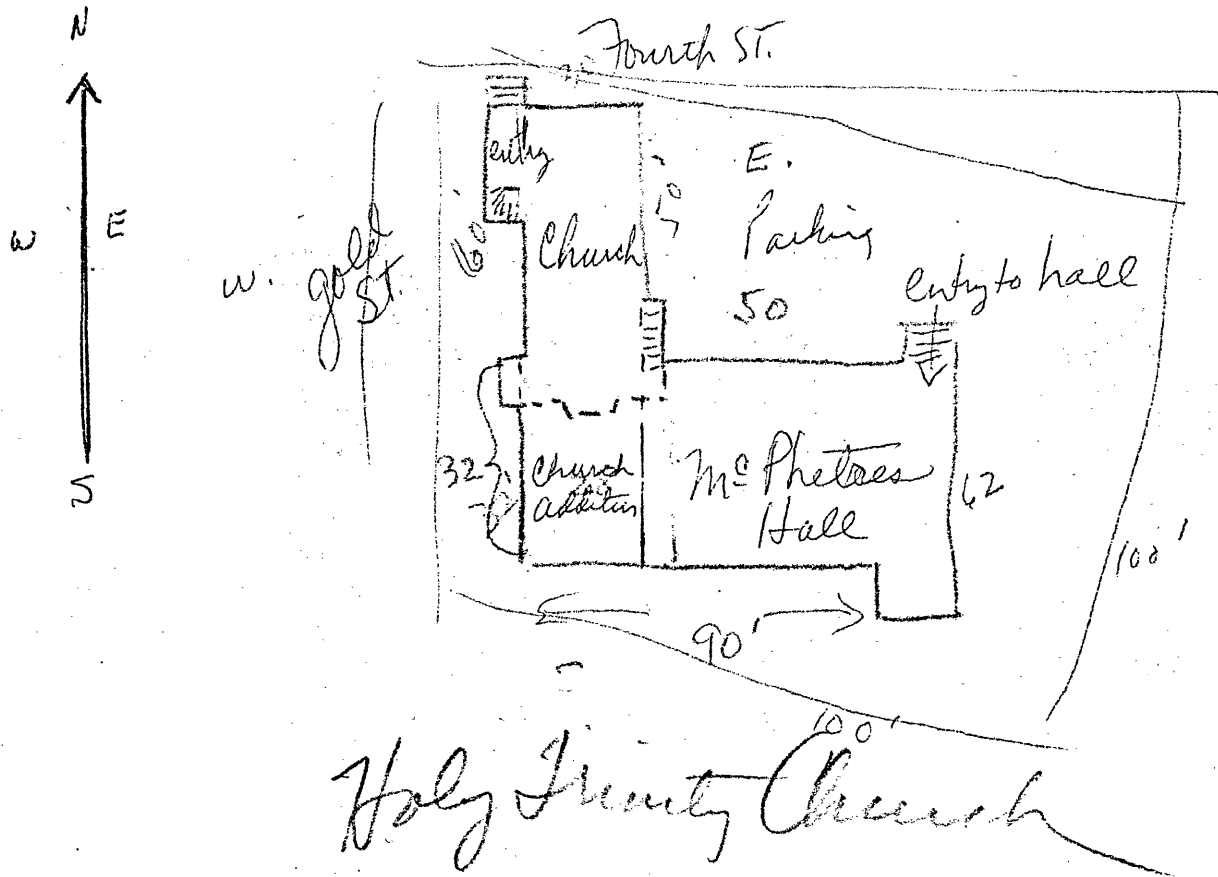 N
W E
S
Fourth St.
w. gold St.
entry
60
Church
50
E.
Parking
50
entry to hall
32
Church
addition
McPhetres
Hall
62
100'
90'
100'
Holy Trinity Church